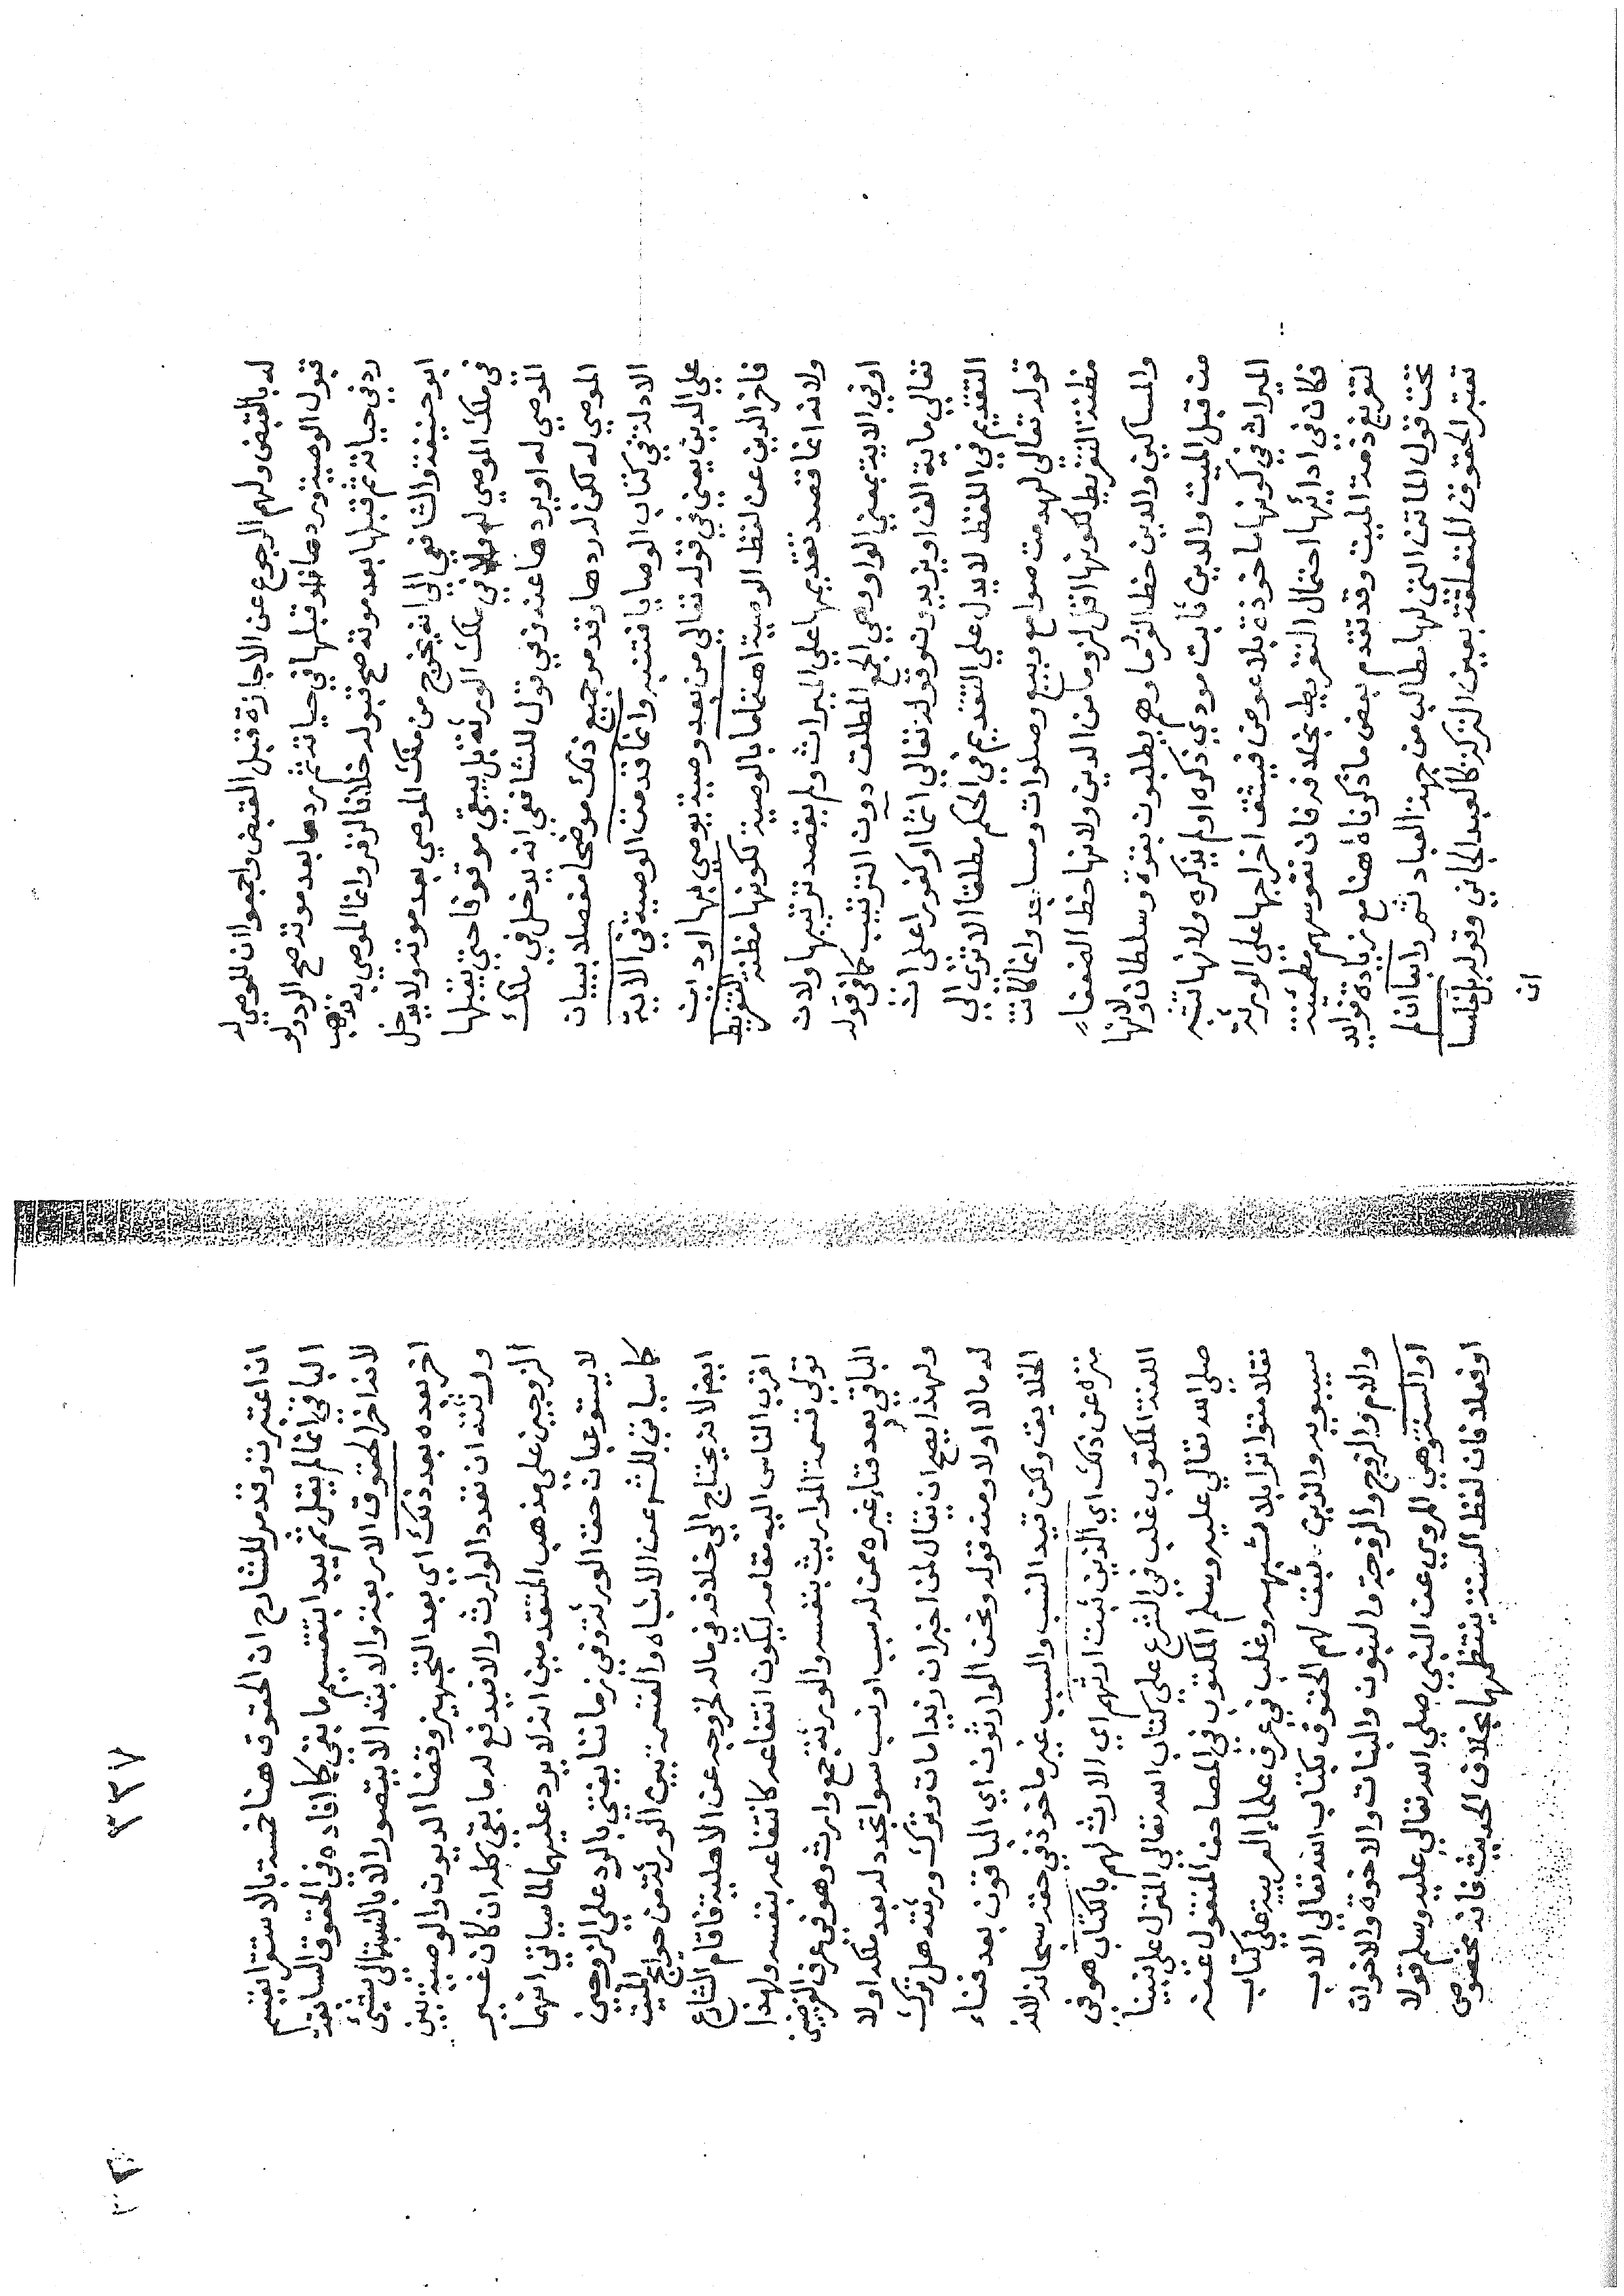 له بالقبض ولهم الرجوع عن الاجازة قبل القبض واجمعوا ان للموصي له
قبول الوصية وردها فلو قبلها في حياته ثم ردها بعد موته صح الرد ولو
رد في حياته ثم قبلها بعد موته صح قبوله خلافا لزفر وانما الموصي به فذهب
ابو حنيفة والشافعي الي انه يخرج من ملك الموصي بعد موته ولا يدخل
في ملك الموصي له ولا في ملك الورثة بل يبقي موقوفا حتي يقبلها
الموصي له او يردها عنده وفي قول للشافعي انه يدخل في ملك
الموصي له لكن له ردها وقد مر جميع ذلك موضحا مفصلا ببيان
الادلة في كتاب الوصايا فتنبه وانما قدمت الوصية في الاية
علي الدين يعني في قوله تعالي من بعد وصية يوصي بها او دين
فاخر الدين عن لفظ الوصية اهتماما بالوصية لكونها مظنة التفريط
ولانه انما قصد تقديمها علي الميراث ولم يقصد ترتيبها ولان
او في الاية بمعني الواو وهي الجمع المطلق دون الترتيب كما في قوله
تعالي ماية الف او يزيدون وقوله تعالي اثما او كفورا علي ان
التقديم في اللفظ لا يدل علي التقديم في الحكم مطلقا الا تري الي
قوله تعالي لهدمت صوامع وبيع وصلوات ومساجد وانما كانت
مظنة التفريط لكونها اقل لزوما من الدين ولانها حظ الضعفاء
والمساكين والدين حظ الغرما وهم يطلبون بقوة وسلطان ولانها
من قبل الميت والدين ثابت مودي ذكره او لم يذكره ولانها تشبه
الميراث في كونها ماخوذة بلا عوض فيشق اخراجها علي الورثة
فكان في ادائها احتمال التفريط بخلافه فان نفوسهم مطمئنة
لتفريغ ذمة الميت وقد تقدم بعض ما ذكرناه هنا مع زيادة فوايد
تحت قول الماتن التي لها مطالب من جهة العباد ثم رابعا ان لم
تعتبر الحقوق المتعلقة بعين التركة كالعبد الجاني وقوله بل خامسا
ان
٣٣٧
ان اعتبرت وقد مر للشارح ان الحقوق هنا خمسة بالاستقرا يقسم
الباقي انما لم يقل ثم يبدا بتقسيم ما بقي كما افاده في الحقوق السابقة
لانه اخر الحقوق الاربعة والابتدا لا يتصور الا بالنسبة الي شيء
اخر بعده بعد ذلك اي بعد التجهيز وقضا الديون والوصية بين
ورثته ان تعدد الوارث والا فيدفع له ما بقي كله ان كان غير
الزوجين علي مذهب المتقدمين انه لا يرد عليهما لما سياتي انهما
لا يستوعبان حق الورثة وفي زماننا يفتي بالرد علي الزوجين
كما سياتي للشه عن الاشباه والقسمة بين الورثة من حوايج الميت
ايضا لانه يحتاج الي خلافه في ماله لخروجه عن الاهلية فاقام الشارع
اقرب الناس اليه مقامه ليكون انتفاعه كانتفاعه بنفسه ولهذا
تولي قسمة المواريث بنفسه والورثة جمع وارث وهو في عرف الفرضيين
الباقي بعد فناء غيره ممن له سبب او نسب سوا تجدد له بعد ملكه او لا
ولهذا يصح ان يقال لمن اخبر ان زيدا مات وترك ورثة هل ترك
له مالا او لا ومنه قوله ونحن الوارثون اي الباقون بعد فناء
الخلايق ولكن قيد النسب والسبب غير ماخوذ في حقه سبحانه لانه
منزه عن ذلك اي الذين ثبت ارثهم اي الارث لهم بالكتاب هو في
اللغة المكتوب غلب في الشرع علي كتاب الله تعالي المنزل علي نبينا
صلي الله تعالي عليه وسلم المكتوب في المصاحف المنقول عنه
نقلا متواترا بلا شبهة وغلب في عرف علماء العربية علي كتاب
سيبويه والذين ثبت لهم الحقوق بكتاب الله تعالي الاب
والام والزوج والزوجة والبنون والبنات والاخوة والاخوات
او السنة وهي المروي عن النبي صلي الله تعالي عليه وسلم قولا
او فعلا فان لفظ السنة ينتظمها بخلاف الحديث فانه مخصوص